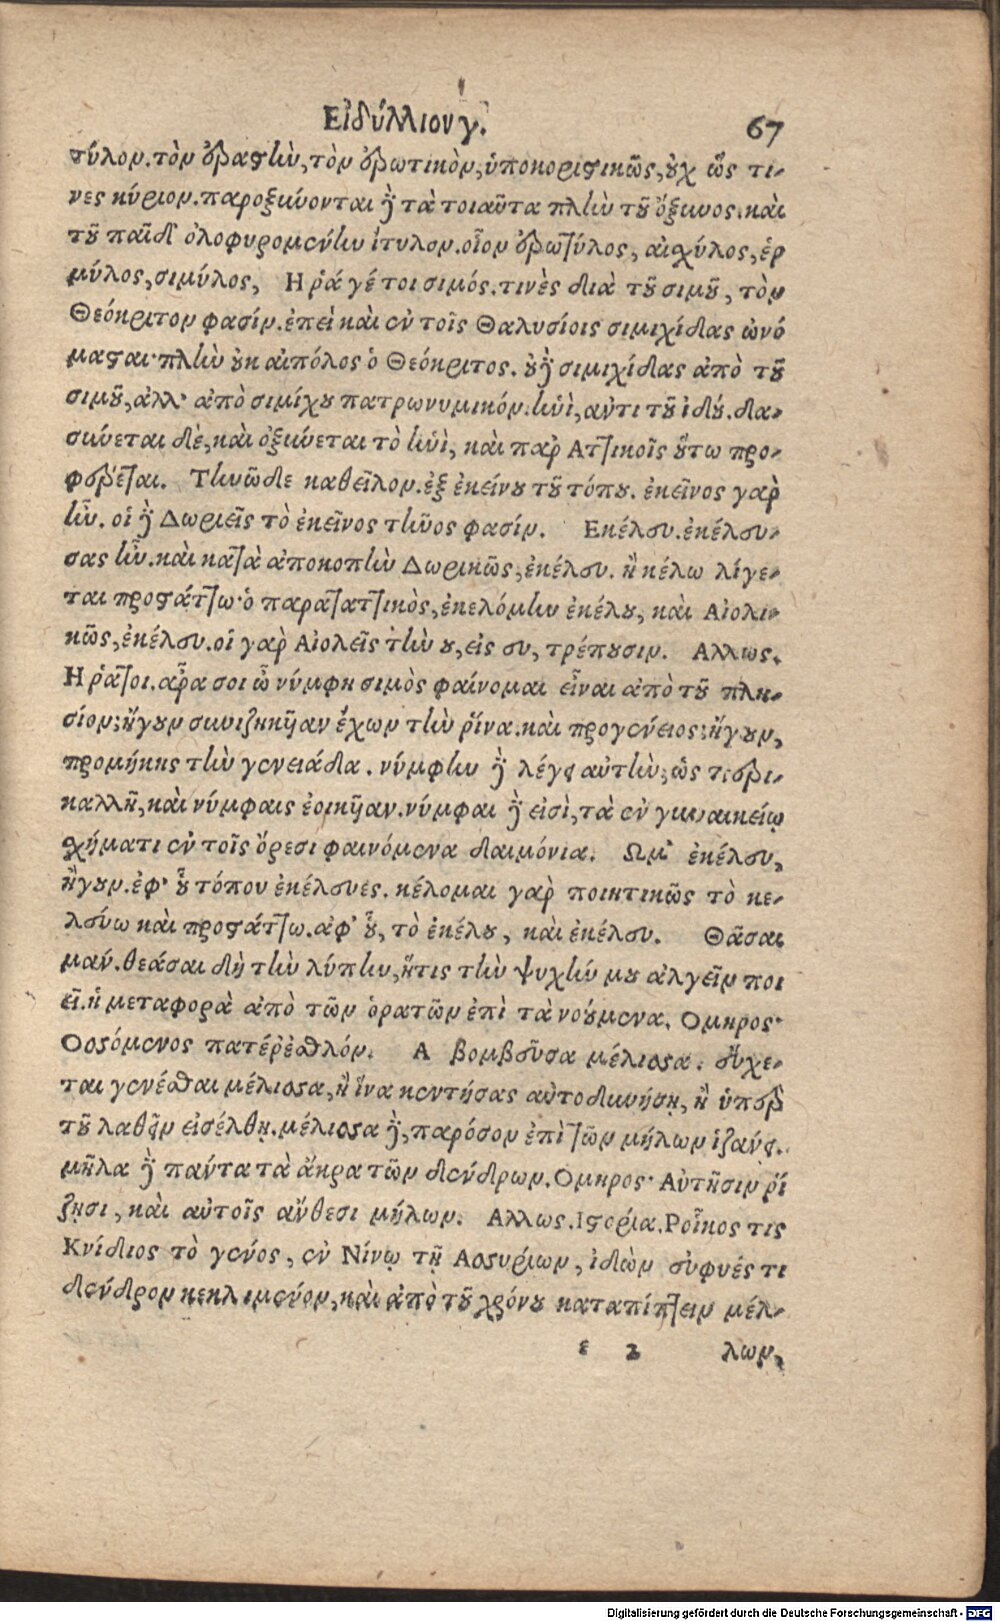 Εἰδύλλιον γ. 67
τύλον. τὸν ἐραστὴν, τὸν ἐρωτικὸν, ὑποκοριστικῶς, οὐχ ὥς τι-
νες κύριον. παροξύνονται δὲ τὰ τοιαῦτα πλὴν τοῦ ὄξυνος. καὶ
τοῦ παῖδ᾽ ὀλοφυρομένην ἴτυλον. οἷον ἐρωτύλος, αἰσχύλος, ἑρ
μύλος, σιμύλος, Η ῥά γέ τοι σιμός. τινὲς διὰ τοῦ σιμοῦ, τὸν
Θεόκριτον φασίν. ἐπεὶ καὶ ἐν τοῖς Θαλυσίοις σιμιχίδας ὠνό
μασται· πλὴν οὐκ αἰπόλος ὁ Θεόκριτος. οὐδὲ σιμιχίδας ἀπὸ τοῦ
σιμοῦ, ἀλλ᾽ ἀπὸ σιμίχου πατρωνυμικόν. ἡνὶ, ἀντὶ τοῦ ἰδού. δα-
σύνεται δὲ, καὶ ὀξύνεται τὸ ἡνὶ, καὶ παρ Ἀττικοῖς οὕτω προ-
φέρεται. Τηνῶδε καθεῖλον. ἐξ ἐκείνου τοῦ τόπου. ἐκεῖνος γὰρ
ἦν. οἱ δὲ Δωριεῖς τὸ ἐκεῖνος τῆνος φασίν. Εκέλευ. ἐκέλευ-
σας ἦν. καὶ κατὰ ἀποκοπὴν Δωρικῶς, ἐκέλευ. ἢ κέλω λέγε-
ται προστάττω· ὁ παρατατικὸς, ἐκελόμην ἐκέλου, καὶ Αἰολι-
κῶς, ἐκέλευ. οἱ γὰρ Αἰολεῖς τὴν ου, εἰς ευ, τρέπουσιν. Αλλως.
Η ῥάτοι. ἆρα σοι ὦ νύμφη σιμὸς φαίνομαι εἶναι ἀπὸ τοῦ πλη-
σίον; ἤγουν συνιζηκῦαν ἔχων τὴν ῥῖνα. καὶ προγένειος; ἤγουν,
προμήκης τὴν γενειάδα. νύμφην δὲ λέγει αὐτὴν, ὡς περι-
καλλῆ, καὶ νύμφαις ἐοικῦαν. νύμφαι δὲ εἰσὶ, τὰ ἐν γυναικείῳ
σχήματι ἐν τοῖς ὄρεσι φαινόμενα δαιμόνια. Ωμ᾽ ἐκέλευ,
ἤγουν. ἐφ᾽ οὗ τόπου ἐκέλευες. κέλομαι γὰρ ποιητικῶς τὸ κε-
λεύω καὶ προστάττω. ἀφ᾽ οὗ, τὸ ἐκέλου, καὶ ἐκέλευ. Θᾶσαι
μαν. θεάσαι δὴ τὴν λύπην, ἥτις τὴν ψυχήν μου ἀλγεῖν ποι
εῖ. ἡ μεταφορὰ ἀπὸ τῶν ὁρατῶν ἐπὶ τὰ νοούμενα. Ομηρος·
Οσσόμενος πατέρ᾽ ἐσθλόν. Α βομβεῦσα μέλισσα. εὔχε-
ται γενέσθαι μέλισσα, ἢ ἵνα κεντήσας αὐτὸ δικνήσῃ, ἢ ὑπὲρ
τοῦ λαθεῖν εἰσέλθῃ. μέλισσα δὲ, παρόσον ἐπὶ τῶν μήλων ἱζάνει.
μῆλα δὲ πάντα τὰ ἄκρα τῶν δένδρων. Ομηρος· Αὐτῇσιν ῥί
ζῃσι, καὶ αὐτοῖς ἄνθεσι μήλων. Αλλως. Ιστορία. Ροῖκος τις
Κνίδιος τὸ γένος, ἐν Νίνῳ τῇ Ασσυρίων, ἰδὼν εὐφυές τι
δένδρον κεκλιμένον, καὶ ἀπὸ τοῦ χρόνου καταπίπτειν μέλ-
ε 2 λων,
Digitalisierung gefördert durch die Deutsche Forschungsgemeinschaft - DFG